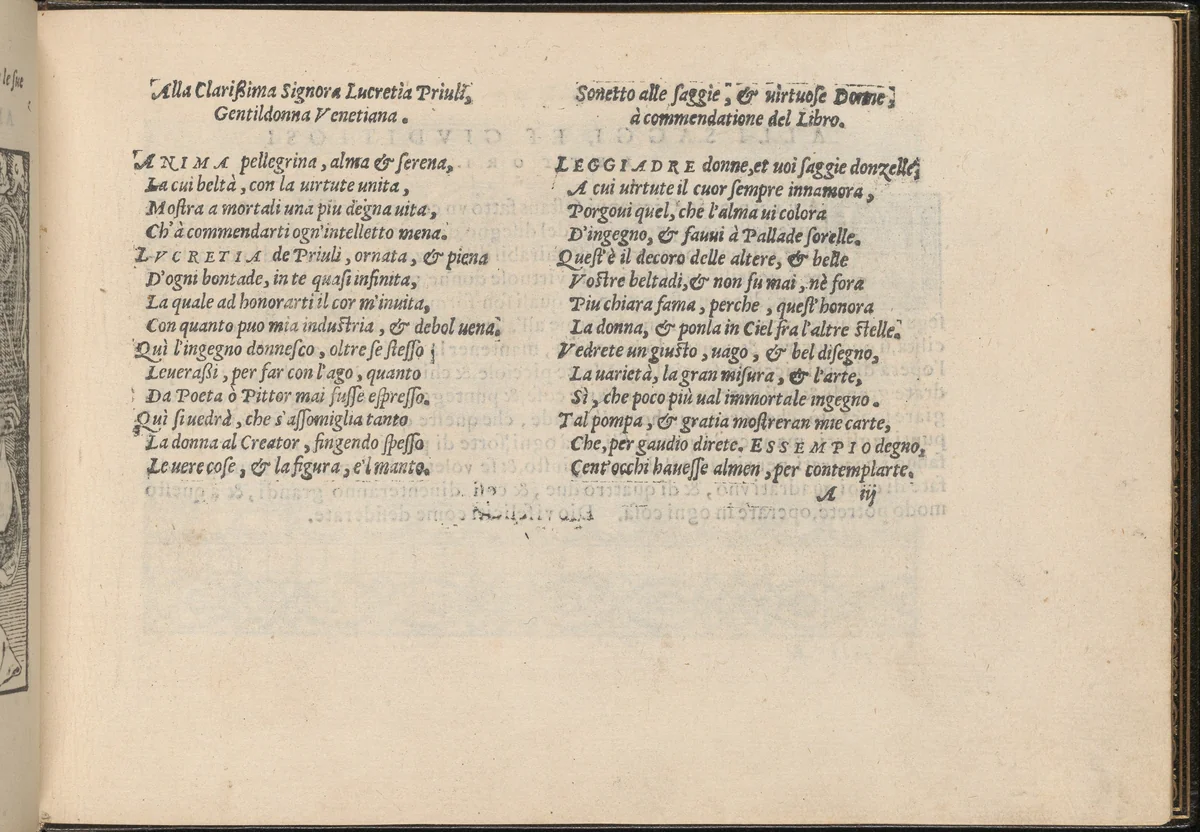 le ſue
Alla Clariſsima Signora Lucretia Priuli,
Gentildonna Venetiana.
ANIMA pellegrina, alma & ſerena,
La cui beltà, con la uirtute unita,
Moſtra a mortali una piu degna uita,
Ch'à commendarti ogn'intelletto mena.
LVCRETIA de Priuli, ornata, & piena
D'ogni bontade, in te quaſi infinita,
La quale ad honorarti il cor m'inuita,
Con quanto puo mia induſtria, & debol uena.
Quì l'ingegno donneſco, oltre ſe ſteſſo
Leueraſsi, per far con l'ago, quanto
Da Poeta ò Pittor mai fuſſe eſpreſſo.
Quì ſi uedrà, che s'aſſomiglia tanto
La donna al Creator, fingendo ſpeſſo
Le uere coſe, & la figura, e'l manto.
Sonetto alle ſaggie, & uirtuoſe Donne,
à commendatione del Libro.
LEGGIADRE donne, et uoi ſaggie donzelle,
A cui uirtute il cuor ſempre innamora,
Porgoui quel, che l'alma ui colora
D'ingegno, & fauui à Pallade ſorelle.
Queſt'è il decoro delle altere, & belle
Voſtre beltadi, & non fu mai, nè fora
Piu chiara fama, perche, queſt'honora
La donna, & ponla in Ciel fra l'altre ſtelle.
Vedrete un giuſto, uago, & bel diſegno,
La uarietà, la gran miſura, & l'arte,
Sì, che poco più ual immortale ingegno.
Tal pompa, & gratia moſtreran mie carte,
Che, per gaudio direte. ESSEMPIO degno,
Cent'occhi haueſſe almen, per contemplarte.
A iij